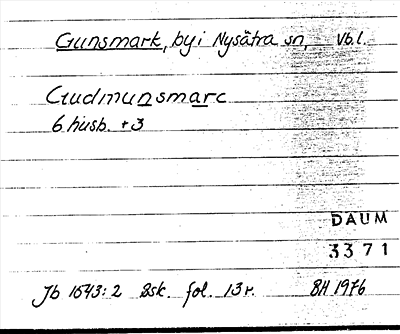 Gunsmark, by i Nysätra sn, Vb.l.
Gudmunsmarc
6 husb. +3
DAUM
3371
Jb 1543:2 Bsk. fol. 13 r. BH 1976